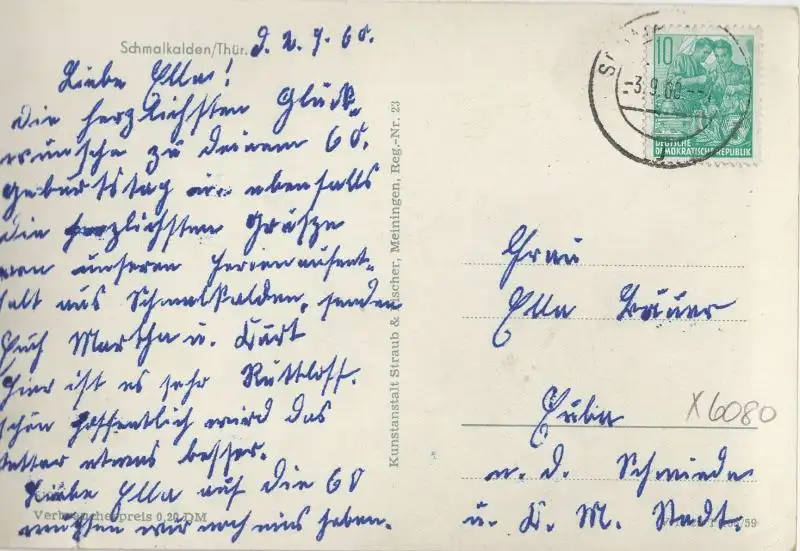 Schmalkalden/Thür. d. 2.9.60.
Liebe Ella!
die herzlichsten Glück-
wünsche zu deinem 60.
Geburtstag u. ebenfalls
die herzlichsten Grüße
von unseren Ferienaufent-
halt aus Schmalkalden, senden
Euch Martha u. Kurt
Hier ist es sehr Ruttloff.
schön hoffentlich wird das
Wetter etwas besser.
Liebe Ella auf die 60
müssen wir noch eins heben.
Verbraucherpreis 0,20 DM
Kunstanstalt Straub & Fischer, Meiningen, Reg.-Nr. 23
-3.9.60
10
DEUTSCHE
DEMOKRATISCHE REPUBLIK
Frau
Ella Bauer
Euba
X6080
a. d. Schmiede
ü. K. M. Stadt.